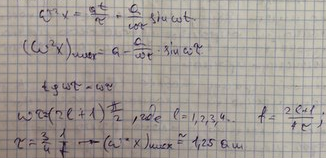 ω²x = at/τ - a/ωτ sin ωt
(ω²x)max = a - a/ωτ · sin ωτ
tg ωτ = ωτ
ωτ ≈ (2l+1) π/2, где l = 1,2,3,4.. f = 2l+1/4τ;
τ = 3/4 1/f → (ω²x)max ≈ 1,25 a